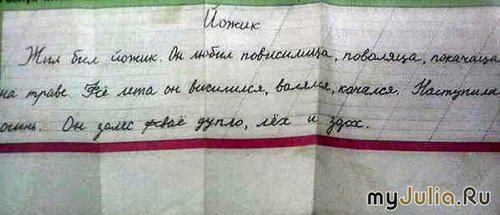 Йожик
Жил бил йожик. Он любил повисилица, поваляца, покачаца
на траве. Fсё лета он висилился, валялся, качался. Наступила
осинь. Он залес fсваё дупло, лёх и здох.
myJulia.Ru